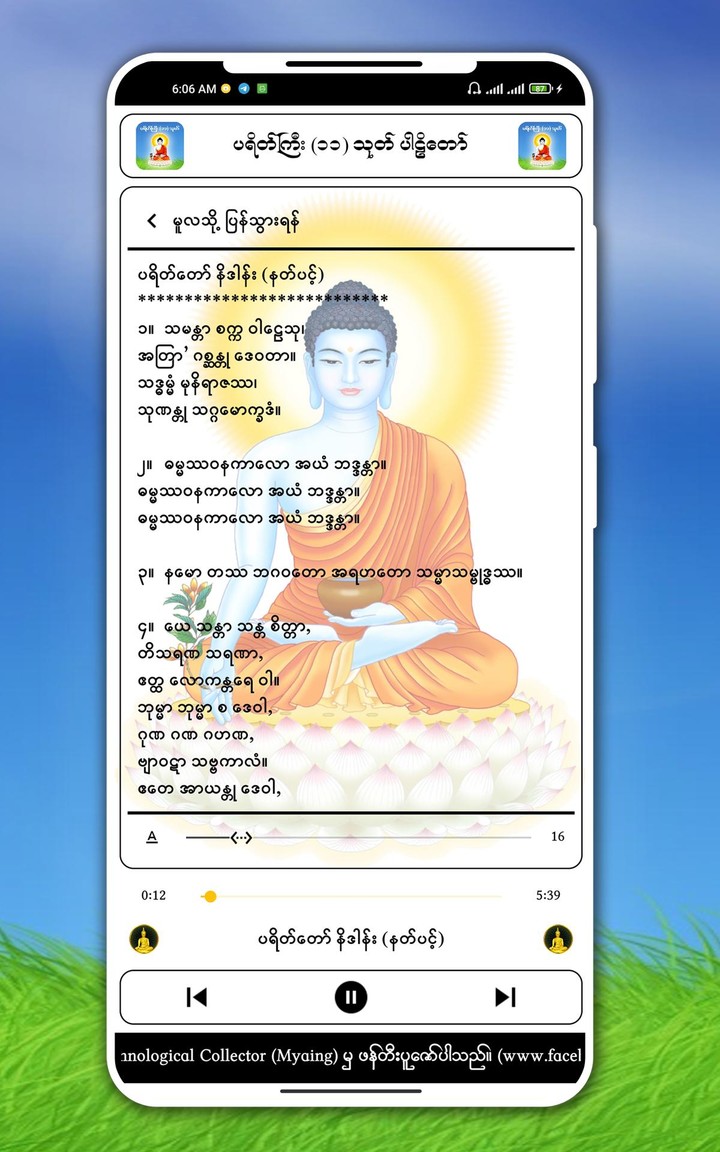 6:06 AM
87
ပရိတ်ကြီး (၁၁) သုတ် ပါဠိတော်
မူလသို့ ပြန်သွားရန်
ပရိတ်တော် နိဒါန်း (နတ်ပင့်)
***************************
၁။ သမန္တာ စက္က ဝါဠေသု၊
အတြာ’ ဂစ္ဆန္တု ဒေဝတာ။
သဒ္ဓမ္မံ မုနိရာဇဿ၊
သုဏန္တု သဂ္ဂမောက္ခဒံ။
၂။ ဓမ္မဿဝနကာလော အယံ ဘဒ္ဒန္တာ။
ဓမ္မဿဝနကာလော အယံ ဘဒ္ဒန္တာ။
ဓမ္မဿဝနကာလော အယံ ဘဒ္ဒန္တာ။
၃။ နမော တဿ ဘဂဝတော အရဟတော သမ္မာသမ္ဗုဒ္ဓဿ။
၄။ ယေ သန္တာ သန္တ စိတ္တာ,
တိသရဏ သရဏာ,
ဧတ္ထ လောကန္တရေ ဝါ။
ဘုမ္မာ ဘုမ္မာ စ ဒေဝါ,
ဂုဏ ဂဏ ဂဟဏ,
ဗျာဝဋာ သဗ္ဗကာလံ။
ဧတေ အာယန္တု ဒေဝါ,
A 16
0:12 5:39
ပရိတ်တော် နိဒါန်း (နတ်ပင့်)
nological Collector (Myaing) မှ ဖန်တီးပူဇော်ပါသည်။ (www.facel